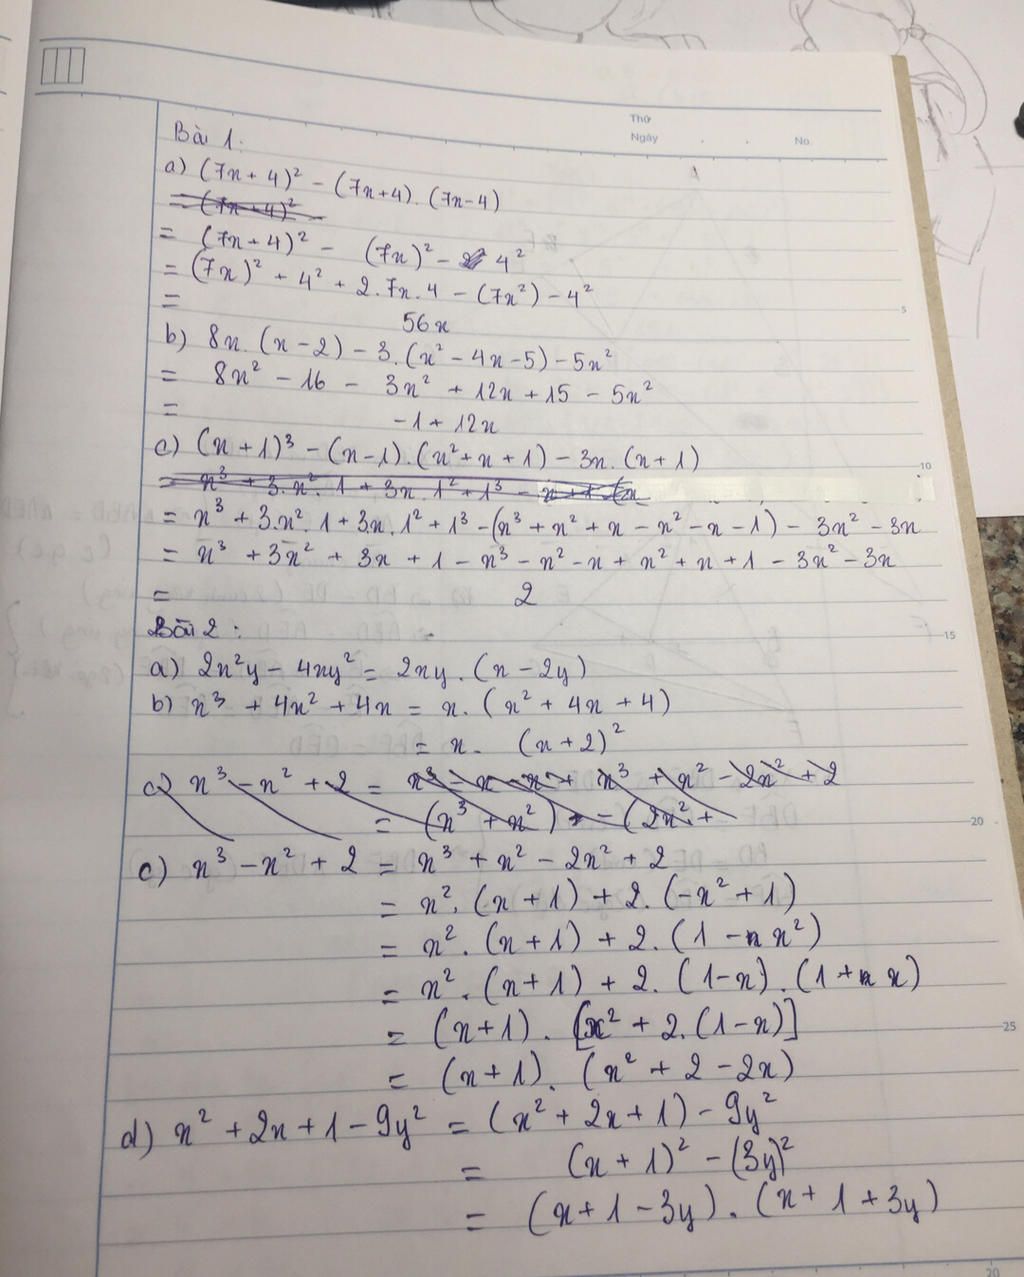 Thứ
Ngày
No.
Bài 1:
a) (7x+4)² - (7x+4).(7x-4)
= (7x+4)²
= (7x+4)² - (7x)² - 4²
= (7x)² + 4² + 2.7x.4 - (7x²) - 4²
= 56x
b) 8x.(x-2) - 3.(x² - 4x - 5) - 5x²
= 8x² - 16 - 3x² + 12x + 15 - 5x²
= -1 + 12x
c) (x+1)³ - (x-1).(x² + x + 1) - 3x.(x+1)
10
= x³ + 3.x².1 + 3x.1² + 1³ - x+1.(x
= x³ + 3.x².1 + 3x.1² + 1³ - (x³ + x² + x - x² - x - 1) - 3x² - 3x
= x³ + 3x² + 3x + 1 - x³ - x² - x + x² + x + 1 - 3x² - 3x
= 2
Bài 2:
15
a) 2x²y - 4xy² = 2xy.(x - 2y)
b) x³ + 4x² + 4x = x.(x² + 4x + 4)
= x. (x+2)²
c) x³ - x² + 2 = x³ - x - x + x³ + x² - 2x² + 2
= (x³ + x²) - (2x² +
20
c) x³ - x² + 2 = x³ + x² - 2x² + 2
= x².(x+1) + 2.(-x² + 1)
= x².(x+1) + 2.(1 - x²)
= x².(x+1) + 2.(1-x).(1+x)
= (x+1).[x² + 2.(1-x)]
25
= (x+1).(x² + 2 - 2x)
d) x² + 2x + 1 - 9y² = (x² + 2x + 1) - 9y²
= (x+1)² - (3y)²
= (x+1-3y).(x+1+3y)